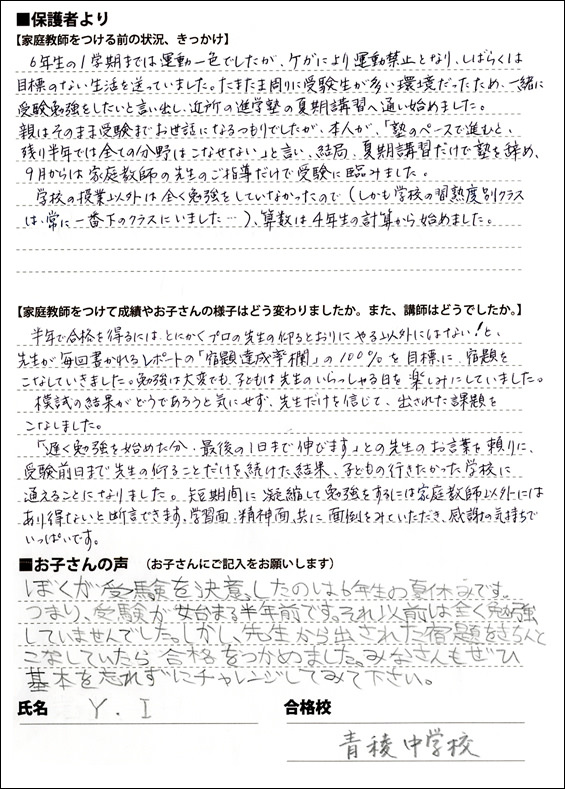 ■保護者より
【家庭教師をつける前の状況、きっかけ】
6年生の1学期までは運動一色でしたが、ケガにより運動禁止となり、しばらくは
目標のない生活を送っていました。たまたま周りに受験生が多い環境だったため、一緒に
受験勉強をしたいと言い出し、近所の進学塾の夏期講習へ通い始めました。
親はそのまま受験までお世話になるつもりでしたが、本人が、「塾のペースで進むと、
残り半年では全ての分野はこなせない」と言い、結局、夏期講習だけで塾を辞め、
9月からは家庭教師の先生のご指導だけで受験に臨みました。
学校の授業以外は全く勉強をしていなかったので(しかも学校の習熟度別クラス
は、常に一番下のクラスにいました…)、算数は4年生の計算から始めました。
【家庭教師をつけて成績やお子さんの様子はどう変わりましたか。また、講師はどうでしたか。】
半年で合格を得るには、とにかくプロの先生の仰るとおりにやる以外にはない!と、
先生が毎回書かれるレポートの「宿題達成率欄」の100%を目標に、宿題を
こなしていきました。勉強は大変でも、子どもは先生のいらっしゃる日を楽しみにしていました。
模試の結果がどうであろうと気にせず、先生だけを信じて、出された課題を
こなしました。
「遅く勉強を始めた分、最後の1日まで伸びます」との先生のお言葉を頼りに、
受験前日まで先生の仰ることだけを続けた結果、子どもの行きたかった学校に
通えることになりました。短期間に凝縮して勉強をするには家庭教師以外には
あり得ないと断言できます。学習面、精神面、共に面倒をみていただき、感謝の気持ちで
いっぱいです。
■お子さんの声 (お子さんにご記入をお願いします)
ぼくが受験を決意したのは6年生の夏休みです。
つまり、受験が始まる半年前です。それ以前は全く勉強
していませんでした。しかし、先生から出された宿題をきちんと
こなしていたら合格をつかめました。みなさんもぜひ
基本を忘れずにチャレンジしてみて下さい。
氏名 Y.I 合格校
青稜中学校